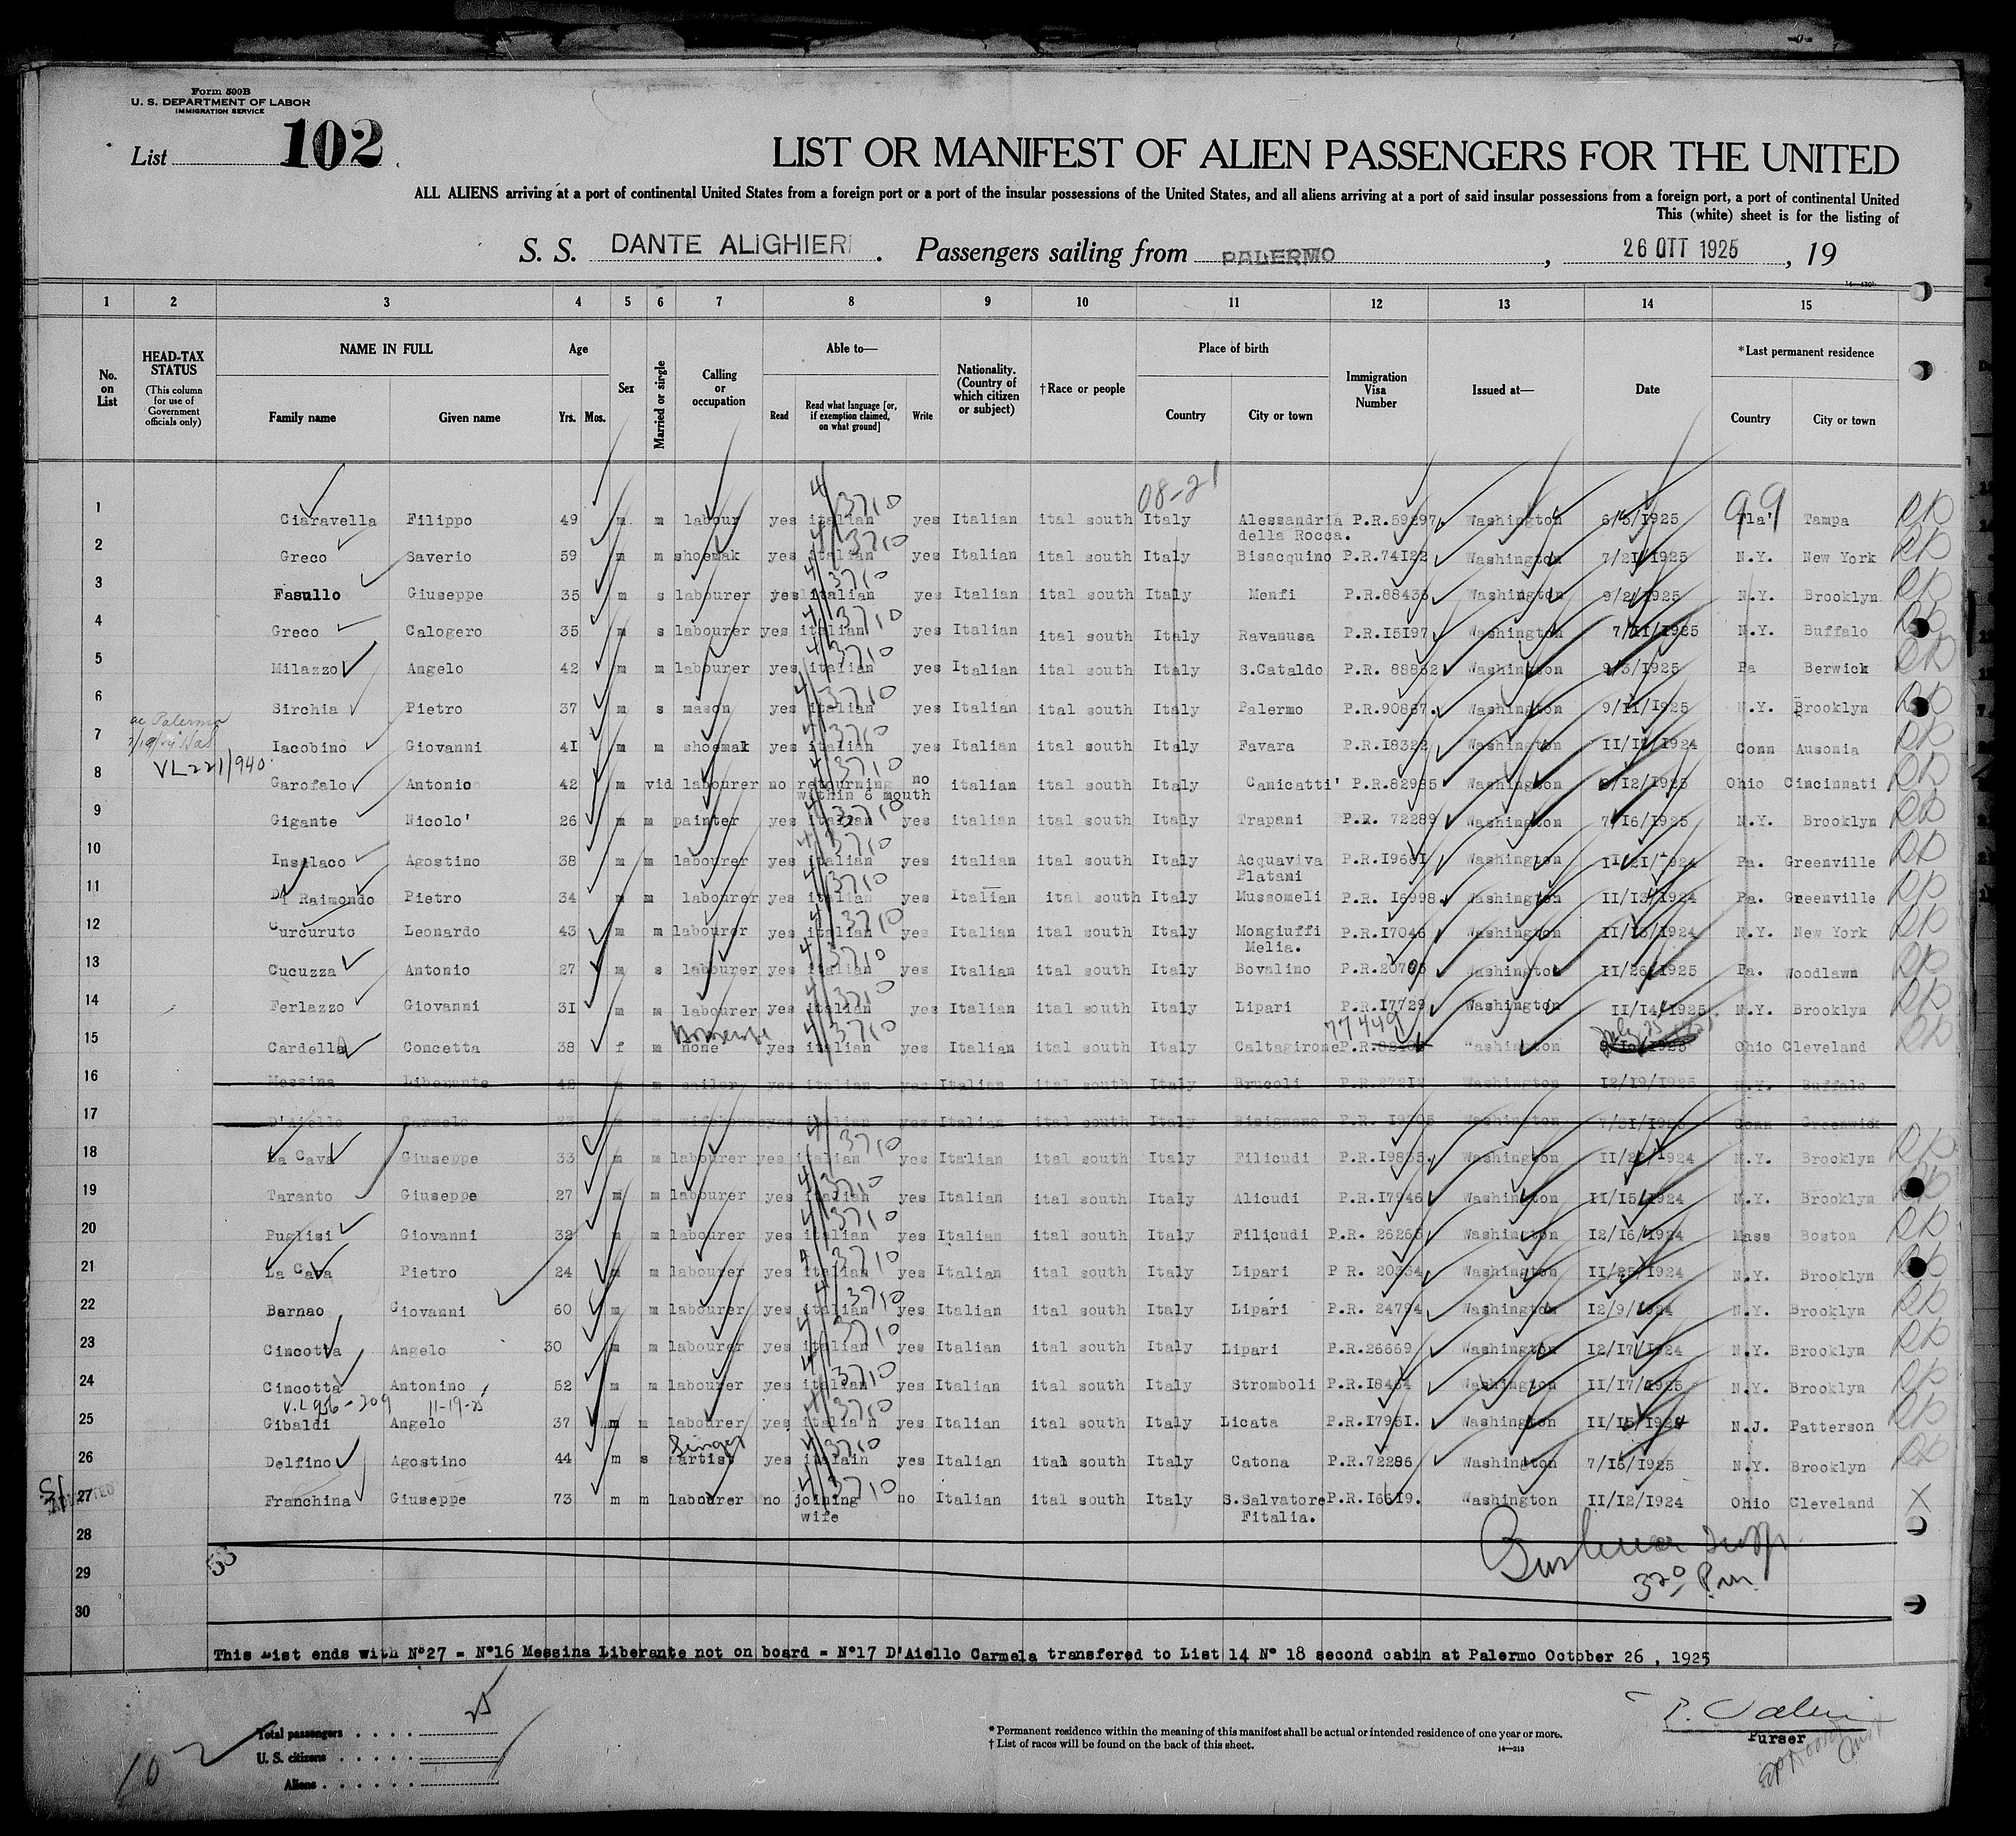 Form 500B
U. S. DEPARTMENT OF LABOR
IMMIGRATION SERVICE
List 102
LIST OR MANIFEST OF ALIEN PASSENGERS FOR THE UNITED
ALL ALIENS arriving at a port of continental United States from a foreign port or a port of the insular possessions of the United States, and all aliens arriving at a port of said insular possessions from a foreign port, a port of continental United
This (white) sheet is for the listing of
S. S. DANTE ALIGHIERI . Passengers sailing from PALERMO , 26 OTT 1925 , 19
1 2 3 4 5 6 7 8 9 10 11 12 13 14 15
No. on List
HEAD-TAX STATUS (This column for use of Government officials only)
NAME IN FULL Family name Given name
Age Yrs. Mos.
Sex
Married or single
Calling or occupation
Able to— Read Read what language [or, if exemption claimed, on what ground] Write
Nationality. (Country of which citizen or subject)
†Race or people
Place of birth Country City or town
Immigration Visa Number
Issued at—
Date
*Last permanent residence Country City or town
08-21 99
1 Ciaravella Filippo 49 m m labour yes italian 3710 yes Italian ital south Italy Alessandria della Rocca. P.R.59297 Washington 6/5/1925 Fla' Tampa
2 Greco Saverio 59 m m shoemak yes italian 3710 yes Italian ital south Italy Bisacquino P.R.74122 Washington 7/21/1925 N.Y. New York
3 Fasullo Giuseppe 35 m s labourer yes italian 3710 yes Italian ital south Italy Menfi P.R.88436 Washington 9/2/1925 N.Y. Brooklyn
4 Greco Calogero 35 m s labourer yes italian 3710 yes Italian ital south Italy Ravanusa P.R.I5I97 Washington 7/11/1925 N.Y. Buffalo
5 Milazzo Angelo 42 m m labourer yes italian 3710 yes Italian ital south Italy S.Cataldo P.R. 88862 Washington 9/3/1925 Pa Berwick
6 Sirchia Pietro 37 m s mason yes italian 3710 yes Italian ital south Italy Palermo P.R.90867. Washington 9/II/1925 N.Y. Brooklyn
7 Iacobino Giovanni 4I m m shoemak yes italian 3710 yes Italian ital south Italy Favara P.R.I8322 Washington 1924 Conn Ausonia
VL221/940
8 Garofalo Antonio 42 m vid labourer no retourning within 6 mouth 3710 no italian ital south Italy Canicatti' P.R.82985 Washington /12/1925 Ohio Cincinnati
9 Gigante Nicolo' 26 m m painter yes italian 3710 yes italian ital south Italy Trapani P.R. 72289 Washington 7/16/1925 N.Y. Brooklyn
10 Insalaco Agostino 38 m m labourer yes italian 3710 yes italian ital south Italy Acquaviva Platani P.R.I966I Washington II/2I/1924 Pa. Greenville
11 Di Raimondo Pietro 34 m m labourer yes italian 3710 yes Italian ital south Italy Mussomeli P.R. I6998. Washington II/13/1924 Pa. Greenville
12 Curcuruto Leonardo 43 m m labourer yes italian 3710 yes Italian ital south Italy Mongiuffi Melia. P.R.I7046 Washington 1924 N.Y. New York
13 Cucuzza Antonio 27 m s labourer yes italian 3710 yes Italian ital south Italy Bovalino Washington II/26/1925 Pa. Woodlawn
14 Ferlazzo Giovanni 3I m m labourer yes italian 3710 yes Italian ital south Italy Lipari P.R.I7729 Washington II/I4/1925 N.Y. Brooklyn
15 Cardella Concetta 38 f m none yes italian 3710 yes Italian ital south Italy Caltagirone P.R. 774491 Washington Ohio Cleveland
16 Messina Liberante m sailor yes italian yes Italian ital south Italy Brucoli Washington 12/19/1925 N.Y. Buffalo
17 D'Aiello Carmelo m yes italian yes Italian ital south Italy Bisignano Washington Conn Greenwich
18 La Cava Giuseppe 33 m m labourer yes italian 3710 yes Italian ital south Italy Filicudi P.R.I9835. Washington 1924 N.Y. Brooklyn
19 Taranto Giuseppe 27 m m labourer yes italian 3710 yes Italian ital south Italy Alicudi P.R.I7946 Washington II/I5/1924 N.Y. Brooklyn
20 Puglisi Giovanni 32 m m labourer yes italian 3710 yes Italian ital south Italy Filicudi P.R. 26266 Washington I2/I6/1924 Mass Boston
21 La Cava Pietro 24 m m labourer yes italian 3710 yes Italian ital south Italy Lipari P R. 20334 Washington II/25/1924 N.Y. Brooklyn
22 Barnao Giovanni 60 m m labourer yes italian 3710 yes Italian ital south Italy Lipari P.R. 24794 Washington I2/9/1924 N.Y. Brooklyn
23 Cincotta Angelo 30 m m labourer yes italian 3710 yes Italian ital south Italy Lipari P.R.26669 Washington I2/I7/1924 N.Y. Brooklyn
24 Cincotta Antonino 52 m m labourer yes italian 3710 yes Italian ital south Italy Stromboli P.R.I8464 Washington II/I7/1925 N.Y. Brooklyn
V.L 956-209 11-19-25
25 Gibaldi Angelo 37 m m labourer yes italian 3710 yes Italian ital south Italy Licata P.R.I795I. Washington II/I5/1924 N.J. Patterson
26 Delfino Agostino 44 m s artist Singer yes italain 3710 yes Italian ital south Italy Catona P.R.72286 Washington 7/I6/1925 N.Y. Brooklyn
27 Franchina Giuseppe 73 m m labourer no joining wife 3710 no Italian ital south Italy S.Salvatore Fitalia. P.R.I66I9. Washington II/I2/1924 Ohio Cleveland X
28
29
30
320 P.m.
This List ends with N°27 = N°16 Messina Liberante not on board = N°17 D'Aiello Carmela transfered to List 14 N° 18 second cabin at Palermo October 26 , 1925
Total passengers . . . . 25
U. S. citizens . . . . .
Aliens . . . . . .
102
* Permanent residence within the meaning of this manifest shall be actual or intended residence of one year or more.
† List of races will be found on the back of this sheet.
14—213
Purser